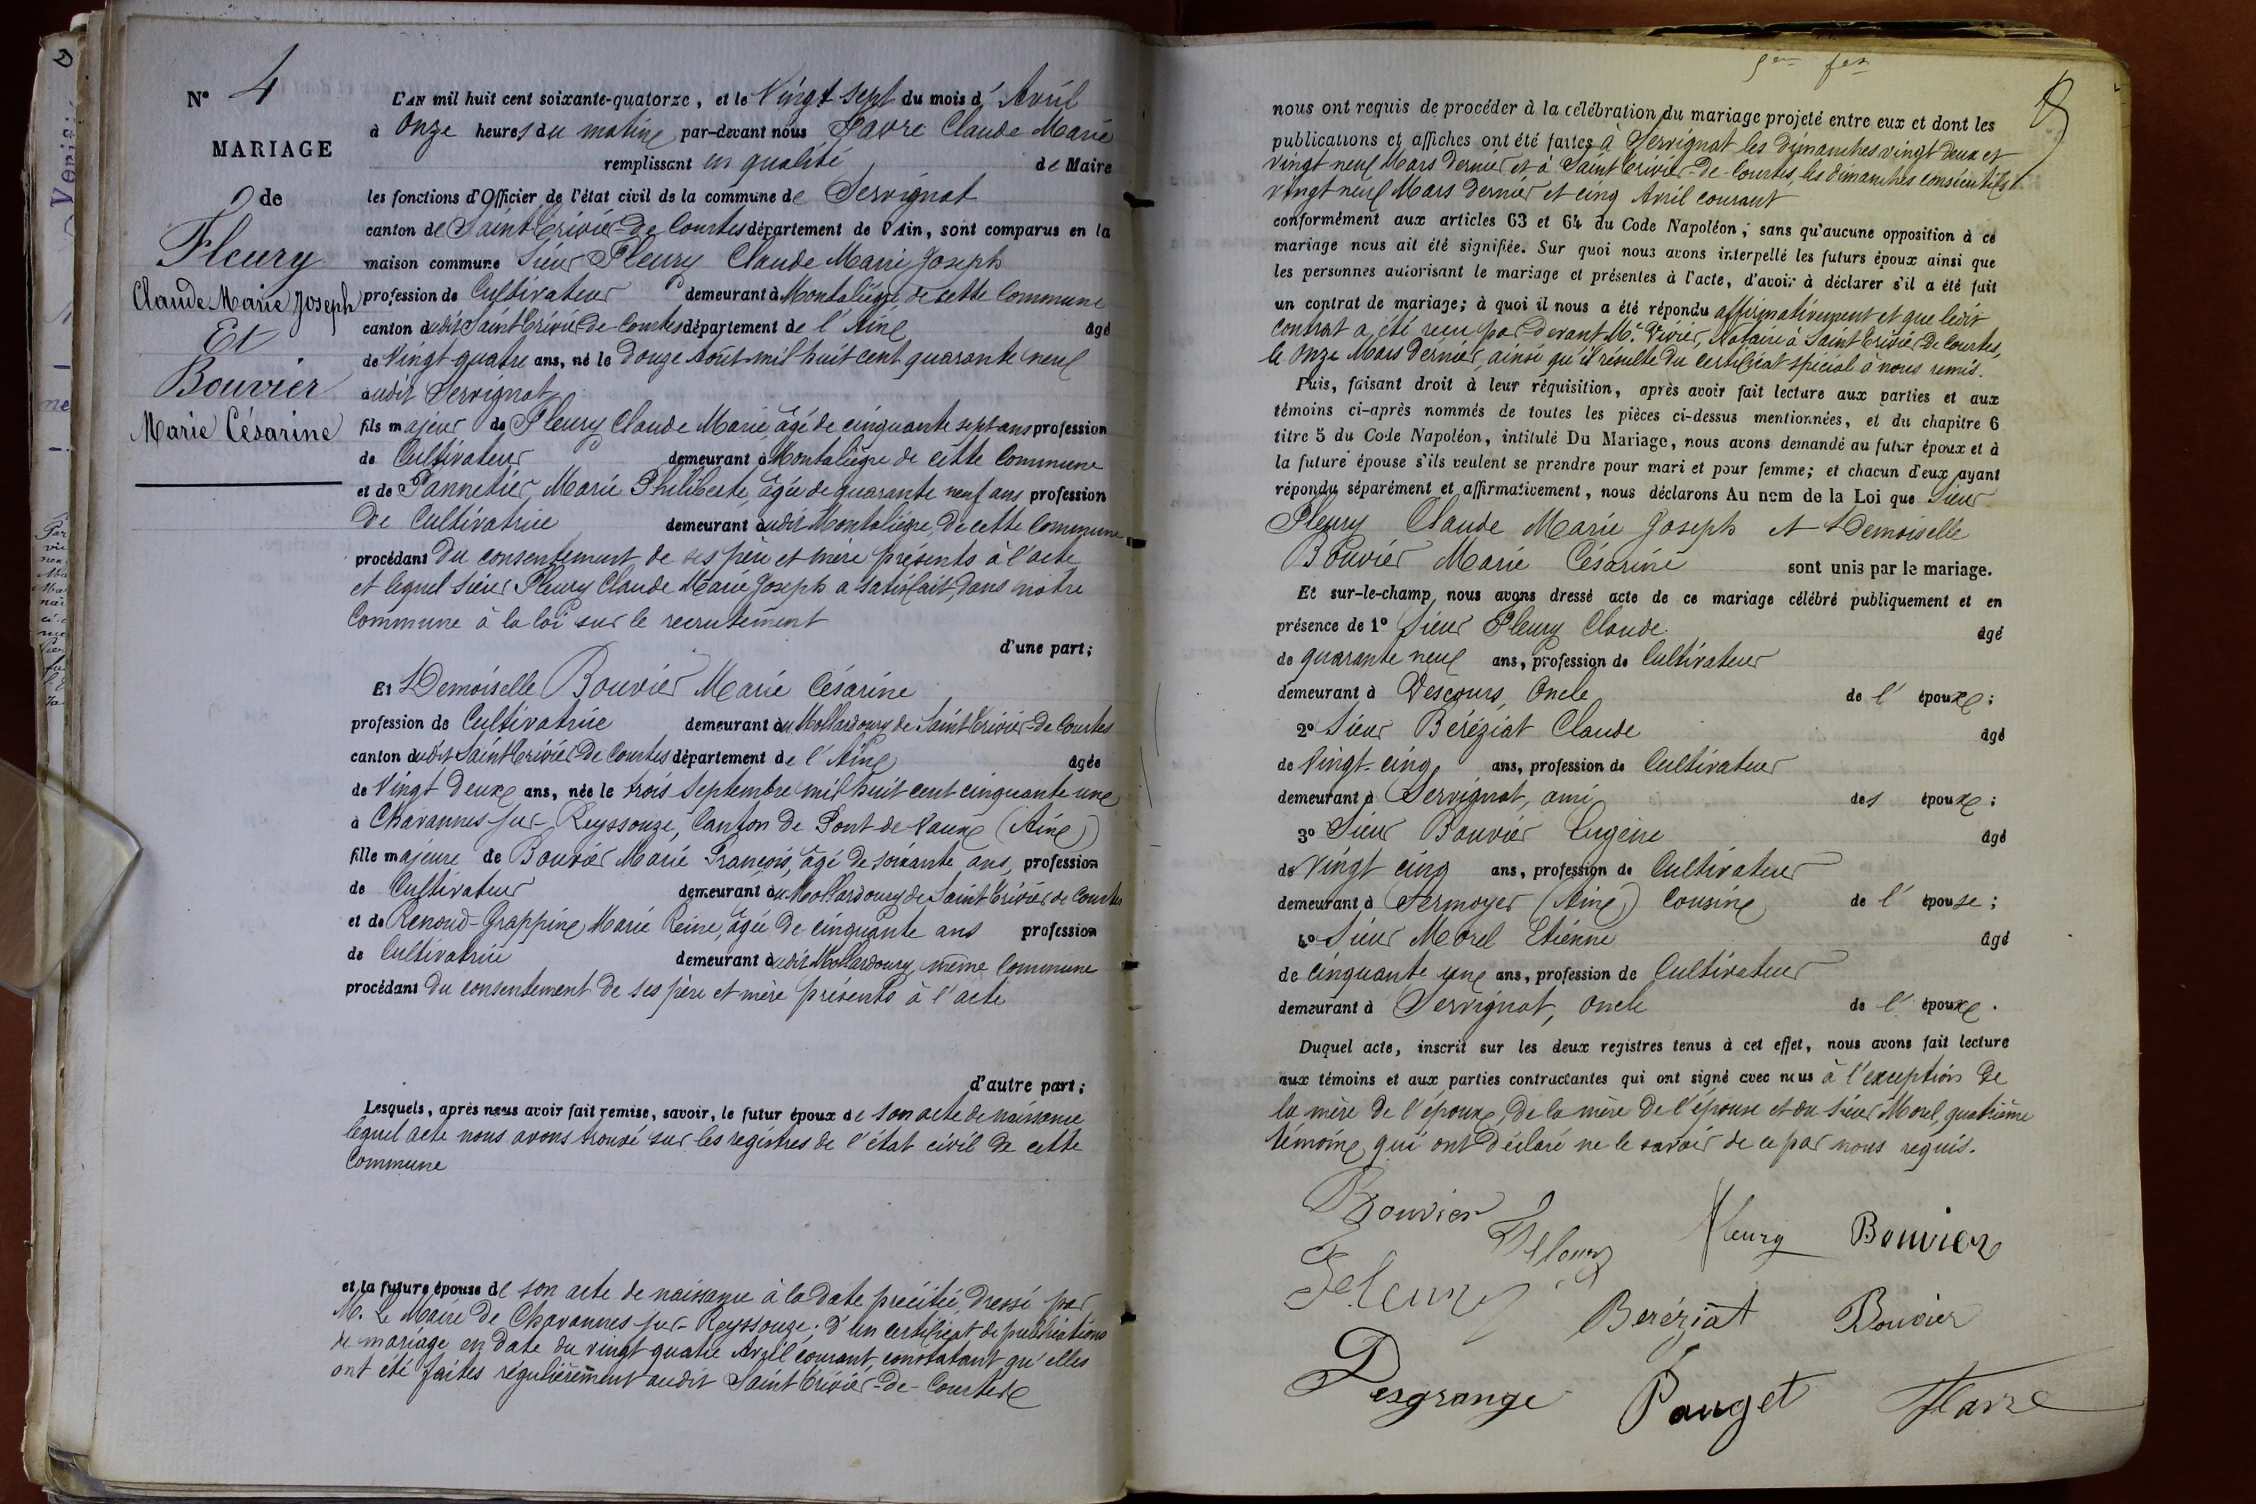 N° 4
MARIAGE
de
Fleury
Claude Marie Joseph
Et
Bouvier
Marie Césarine
L'AN mil huit cent soixante-quatorze, et le Vingt sept du mois d'Avril
à Onze heures du matin, par-devant nous Favre Claude Marie
remplissant en qualité de Maire
les fonctions d'Officier de l'état civil de la commune de Servignat
canton de Saint Trivier-de-Courtes département de l'Ain, sont comparus en la
maison commune Sieur Fleury Claude Marie Joseph
profession de Cultivateur demeurant à Montaliègre de cette Commune
canton dudit Saint Trivier de Courtes département de l'Ain, âgé
de Vingt quatre ans, né le douze août mil huit cent quarante neuf
audit Servignat
fils majeur de Fleury Claude Marie, âgé de cinquante sept ans profession
de Cultivateur demeurant à Montaliègre de cette Commune
et de Pannetier, Marie Philiberte, âgée de quarante neuf ans profession
de Cultivatrice demeurant audit Montaliègre, de cette Commune
procédant du consentement de ses père et mère présents à l'acte
et lequel sieur Fleury Claude Marie Joseph a satisfait, dans notre
Commune à la loi sur le recrutement
d'une part;
Et Demoiselle Bouvier Marie Césarine
profession de Cultivatrice demeurant au Mollardoury de Saint Trivier-de Courtes
canton dudit Saint Trivier de Courtes département de l'Ain, âgée
de Vingt deux ans, née le trois Septembre mil huit cent cinquante un
à Chavannes sur-Reyssouze, Canton de Pont-de-Vaux (Ain)
fille majeure de Bouvier Marie François, âgé de soixante ans, profession
de Cultivateur demeurant au Mollardoury de Saint Trivier de Courtes
et de Renoud-Grappin, Marie Reine, âgée de cinquante ans profession
de Cultivatrice demeurant audit Mollardoury, même Commune
procédant du consentement de ses père et mère présents à l'acte
d'autre part;
Lesquels, après nous avoir fait remise, savoir, le futur époux de son acte de naissance
lequel acte nous avons trouvé sur les registres de l'état civil de cette
Commune
et la future épouse de son acte de naissance à la date précitée, dressé par
M. Le Maire de Chavannes sur-Reyssouze; d'un certificat de publications
de mariage en date du vingt quatre Avril courant, constatant qu'elles
ont été faites régulièrement audit Saint Trivier-de-Courtes
nous ont requis de procéder à la célébration du mariage projeté entre eux et dont les
publications et affiches ont été faites à Servignat les dimanches vingt deux et
vingt neuf Mars dernier et à Saint Trivier-de-Courtes, les dimanches consécutifs
vingt neuf Mars dernier et cinq Avril courant
conformément aux articles 63 et 64 du Code Napoléon, sans qu'aucune opposition à ce
mariage nous ait été signifiée. Sur quoi nous avons interpellé les futurs époux ainsi que
les personnes autorisant le mariage et présentes à l'acte, d'avoir à déclarer s'il a été fait
un contrat de mariage; à quoi il nous a été répondu affirmativement et que ledit
contrat a été reçu par devant Me. Vivier, Notaire à Saint Trivier de Courtes,
le Onze Mars dernier, ainsi qu'il résulte du certificat spécial à nous remis.
Puis, faisant droit à leur réquisition, après avoir fait lecture aux parties et aux
témoins ci-après nommés de toutes les pièces ci-dessus mentionnées, et du chapitre 6
titre 5 du Code Napoléon, intitulé Du Mariage, nous avons demandé au futur époux et à
la future épouse s'ils veulent se prendre pour mari et pour femme; et chacun d'eux ayant
répondu séparément et affirmativement, nous déclarons Au nom de la Loi que Sieur
Fleury Claude Marie Joseph et Demoiselle
Bouvier Marie Césarine sont unis par le mariage.
Et sur-le-champ nous avons dressé acte de ce mariage célébré publiquement et en
présence de 1° Sieur Fleury Claude âgé
de quarante neuf ans, profession de Cultivateur
demeurant à Vescours, Oncle de l'époux;
2° Sieur Béréziat Claude âgé
de Vingt-cinq ans, profession de Cultivateur
demeurant à Servignat, ami des époux;
3° Sieur Bouvier Eugène âgé
de Vingt cinq ans, profession de Cultivateur
demeurant à Sermoyer (Ain) Cousin de l'épouse;
4° Sieur Morel Etienne âgé
de cinquante un ans, profession de Cultivateur
demeurant à Servignat, oncle de l'époux.
Duquel acte, inscrit sur les deux registres tenus à cet effet, nous avons fait lecture
aux témoins et aux parties contractantes qui ont signé avec nous à l'exception de
la mère de l'époux, de la mère de l'épouse et du sieur Morel, quatrième
témoin, qui ont déclaré ne le savoir de ce par nous requis.
Bouvier Fleury Fleury Bouvier
Fleury Beréziat Bouvier
Desgrange Pauget Favre